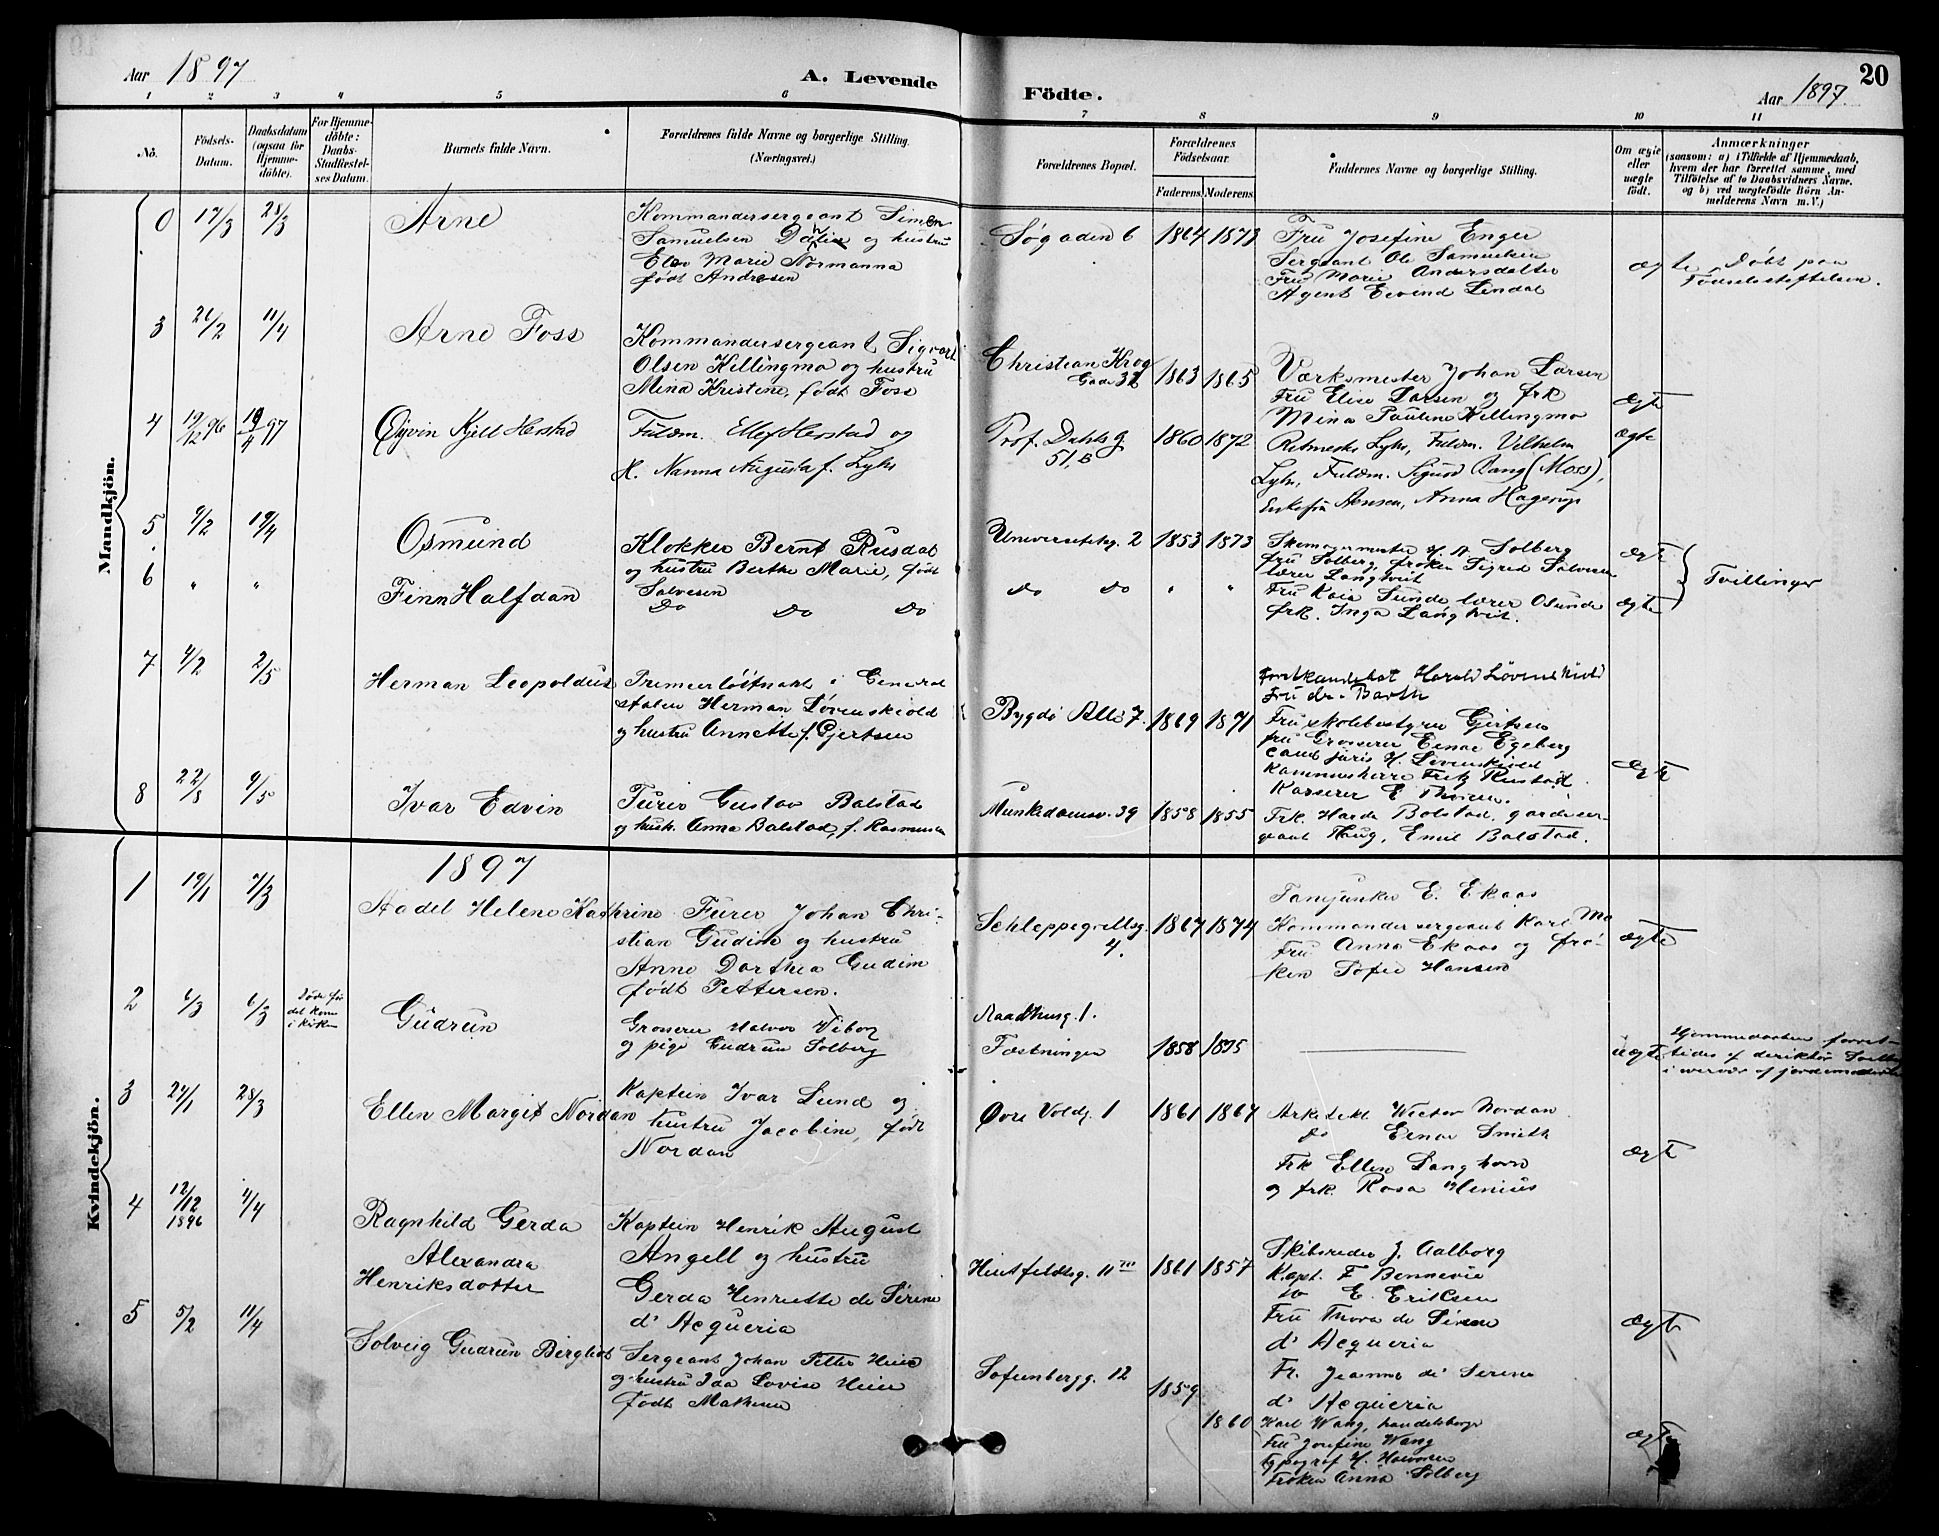 Aar 1897
A. Levende
Födte.
Aar 1897.
20
1 2 3 4 5 6 7 8 9 10 11
No.
Födsels-
Datum.
Daabsdatum
(ogsaa for
Hjemme-
döbte).
For Hjemme-
döbte:
Daabs-
Stadfæstel-
ses Datum.
Barnets fulde Navn.
Forældrenes fulde Navne og borgerlige Stilling.
(Næringsvei.)
Forældrenes Bopæl.
Forældrenes
Födselsaar.
Faderens. Moderens.
Faddernes Navne og borgerlige Stilling.
Om ægte
eller
uægte
født.
Anmærkninger
(saasom: a) i Tilfælde af Hjemmedaab,
hvem der har forrettet samme, med
Tilföielse af to Daabsvidners Navne,
og b) ved uægtefödte Börn An-
melderens Navn m. V.)
Mandkjön.
0 17/3 28/3 Arne
Kommandersergeant Simon
Samuelsen og hustru
Marie Normanna
født Andresen
6 1864 1873
Fru Josefine Enger
Sergeant Ole Samuelsen
Fru Marie Andersdatter
Agent Eivind Lendal
ægte Døbt paa
Fødselsstiftelsen.
3 21/2 11/4 Arne Foss
Kommandersergeant Sigvart
Olsen Killingmo og hustru
Mina Kristine, født Foss
Christian Krog
Gade 32 1863 1865
Værksmester Johan Larsen
Fru Elise Larsen og frk
Mina Pauline Killingmo
ægte
4 19/12 96 19/4 97 Øivin Kjell Herstad
Fuldm. Ellef Herstad og
H. Nanna Augusta f. Lyhs
Prof. Dahls g.
51,B 1860 1872
Lyhs, Fuldm. Vilhelm
Lyhs, Fuldm. Sigurd Bang (Moss),
Enkefru Anna Hagerup
ægte
5 9/2 19/4 Osmund
Klokker Bernt Rusdal
og hustru Berthe Marie, født
Salvesen
Universitetsg. 2 1853 1873
Skomagermester H. A. Solberg
fru Solberg, frøken Sigrid Salvesen
lærer Langtveit
ægte
6 " " Finn Halfdan
Do Do Do
do do " "
Fru Kaia Sunde lærer Osunde
frk. Inga Langtveit.
ægte Tvillinger
7 4/2 2/5 Herman Leopoldus
Premierløitnant i General
staben Herman Løvenskiold
og hustru Annette f. Gjertsen
Bygdø Allé 7. 1869 1871
Forstkandidat Harald Løvenskiold
Fru dr. Barth
Fru skolebestyrer Gjertsen
fru Grosserer Einar Egeberg
cand juris H. Løvenskiold
Kammerherre Fritz Rustad
Kasserer E Thorsen.
ægte
8 22/8 9/5 Ivar Edvin
Furer Gustav Bolstad
og hust. Anna Bolstad, f. Rasmussen
Munkedamsv. 39 1858 1855
Frk. Harda Bolstad, gardeser-
geant Haug, Emil Bolstad.
Kvindekjön.
1897
1 19/1 7/3 Aadel Helene Kathrine
Furer Johan Chri-
stian Gudim og hustru
Anne Dorthea Gudim
født Pettersen.
Schleppegrellsg.
4. 1867 1874
Fanejunker E. Ekaas
Kommandersergeant Karl Mo
Fru Anna Ekaas og frø-
ken Sofie Hansen
ægte
2 6/3 6/3 Døde før
det kom
i kirken
Gudrun
Grosserer Halvor Viborg
og pige Gudrun Solberg
Raadhusg. 1.
Fæstningen 1858 1875
uægte
Hjemmedaaben forret-
tedes af
i nærvær af jordemoderen
3 27/1 28/3 Ellen Margit Nordan
Kaptein Ivar Lund og
hustru Jacobine, født
Nordan
Øvre Voldg. 1 1861 1867
Arkitekt Victor Nordan
do Einar Smith
Frk Ellen Langhorn
og frk. Rosa Henius
ægte
4 12/12 1896 4/4 Ragnhild Gerda
Alexandra
Henriksdotter
Kaptein Henrik August
Angell og hustru
Gerda Henriette de Sérène
d' Acqueria
Huitfeldtsg. 11 III 1861 1857
Skibsreder J. Aalborg
Kapt. F Bennevie
do E. Eriksen
Fru Thora de Sérène
d' Acqueria
Fr. Jeanne de Serene
d' Acqueria
ægte
5 5/2 11/4 Solveig Gudrun Bergliot
Sergeant Johan Petter Heie
og hustru Ida Lovise Heie
født Mathiesen
Sofienbergg. 12 1859 1860
Karl Wang, handelsborger
Fru Josefine Wang
typograf H. Halvorsen
Frøken Anna Solberg
ægte